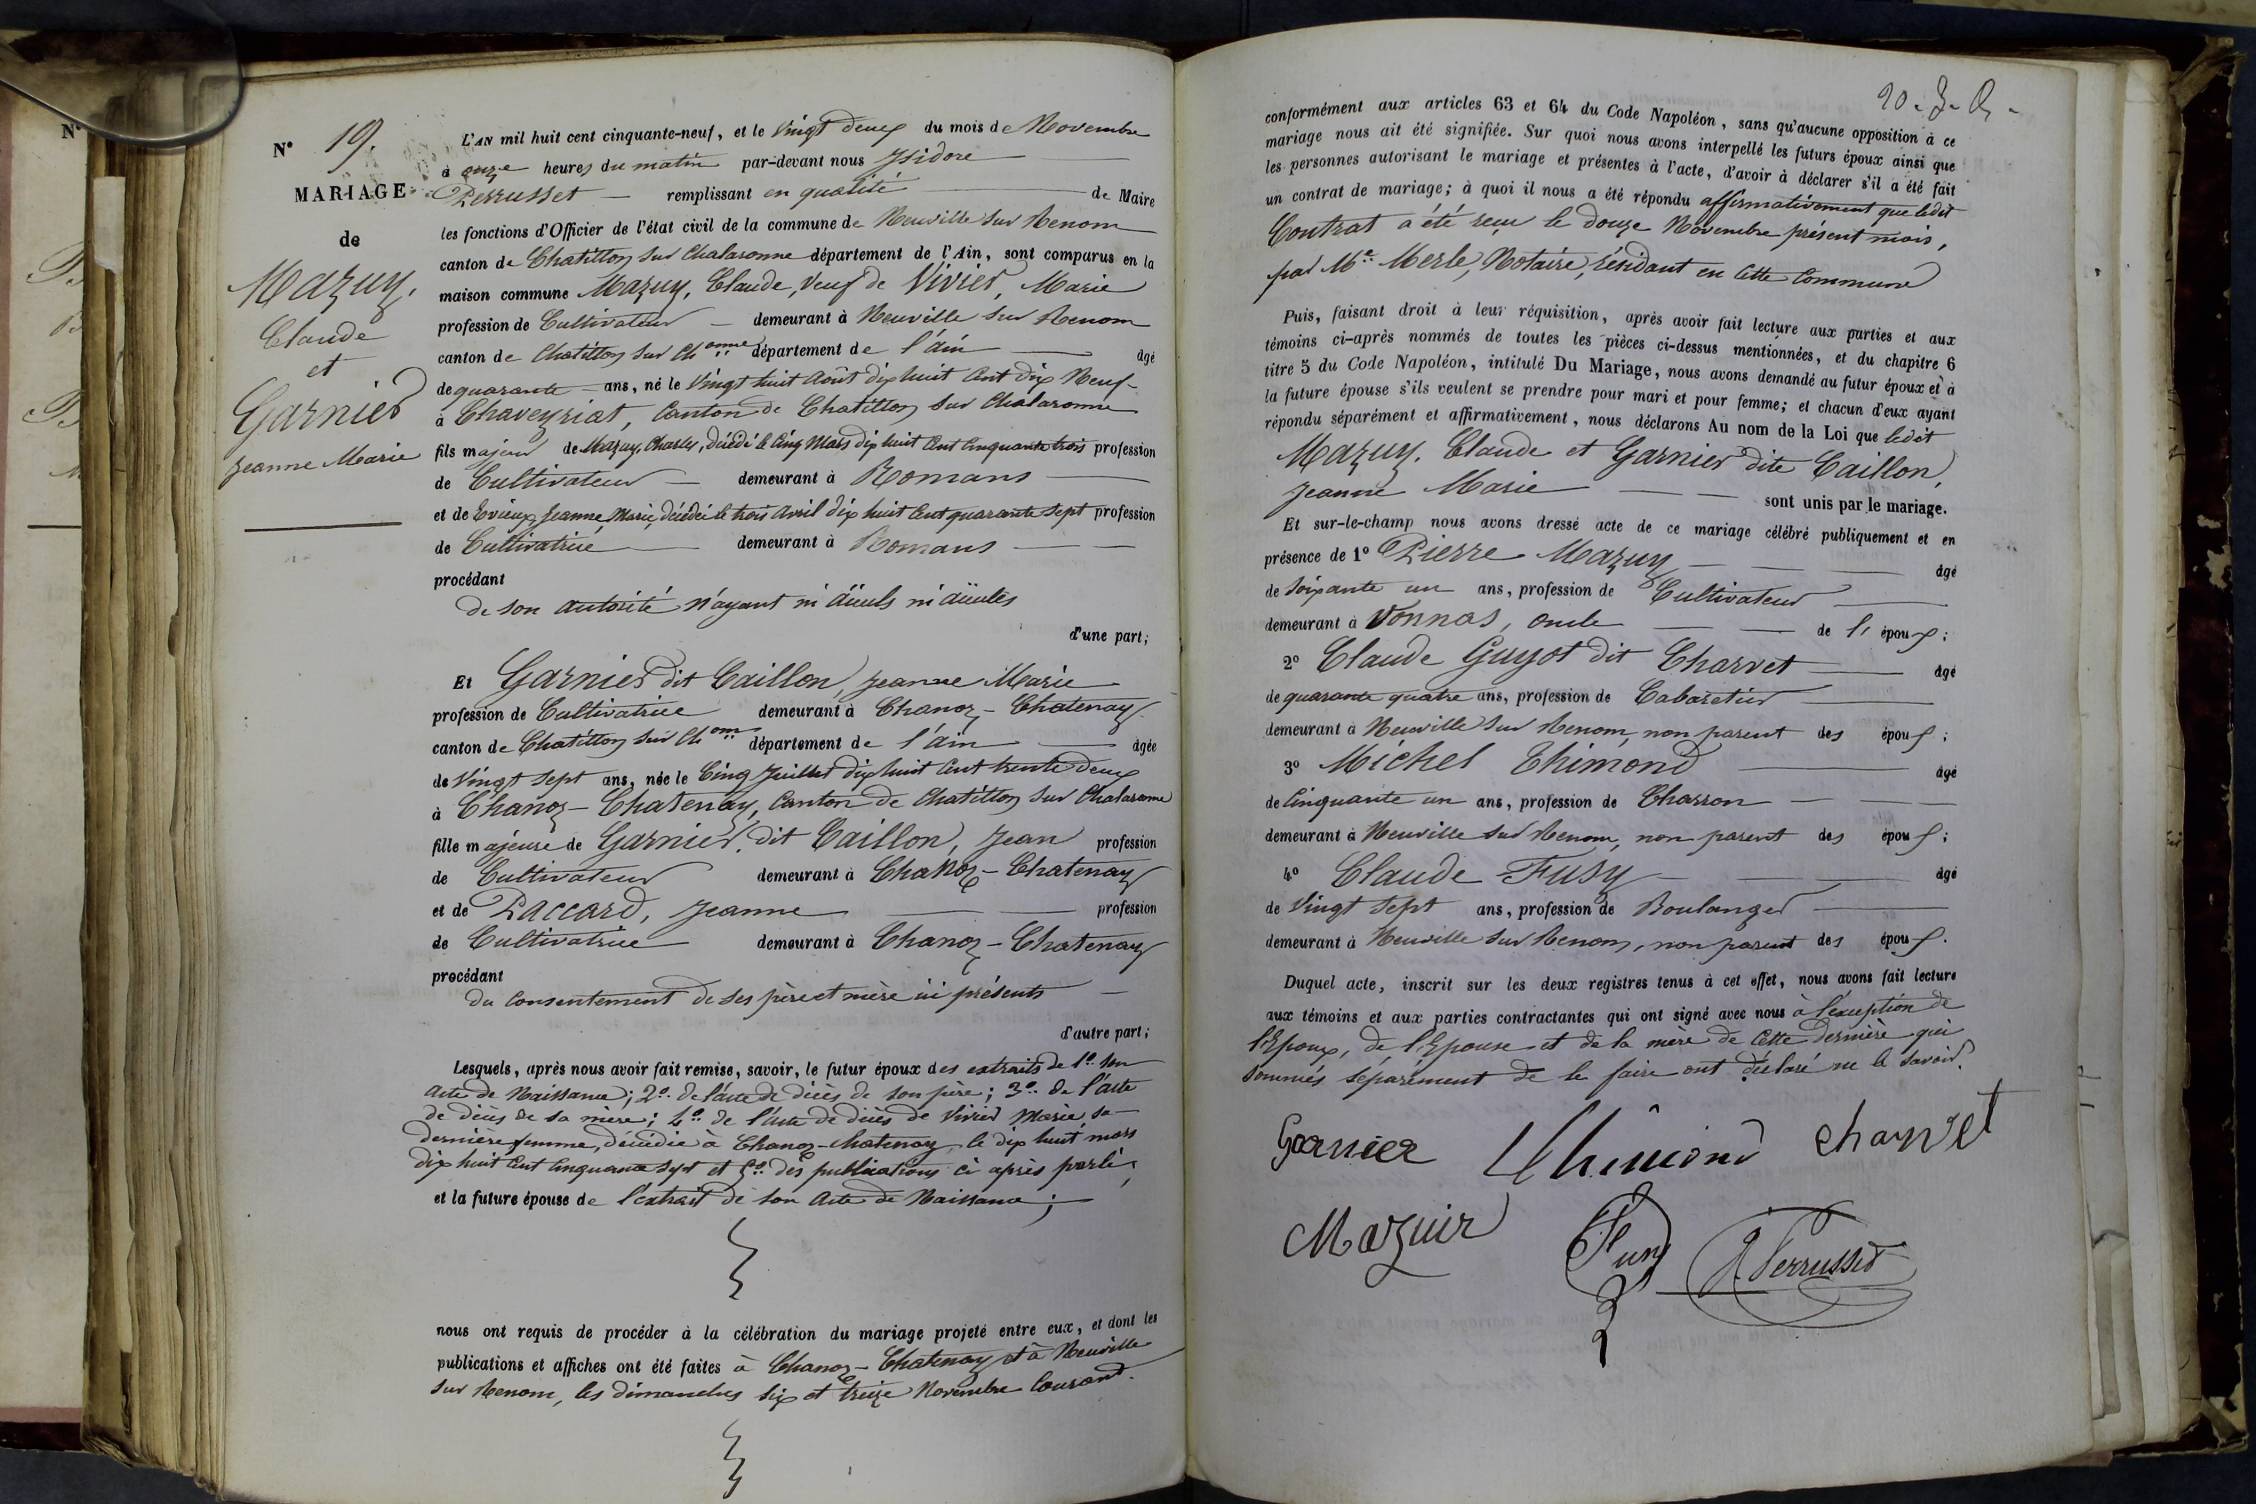 N° 19.
MARIAGE
de
Mazuy,
Claude
et
Garnier
Jeanne Marie
L'AN mil huit cent cinquante-neuf, et le Vingt deux du mois de Novembre
à onze heures du matin par-devant nous Isidore
Perrusset remplissant en qualité de Maire
les fonctions d'Officier de l'état civil de la commune de Neuville sur Renom
canton de Chatillon sur Chalaronne département de l'Ain, sont comparus en la
maison commune Mazuy, Claude, veuf de Vivier, Marie
profession de Cultivateur demeurant à Neuville sur Renom
canton de Chatillon sur Ch.onne département de l'ain âgé
de quarante ans, né le Vingt huit Août dix huit Cent dix Neuf
à Chaveyriat, Canton de Chatillon sur Chalaronne
fils majeur de Mazuy, Charles, décédé le Cinq Mars dix huit Cent Cinquante trois profession
de Cultivateur demeurant à Romans
et de Evieux Jeanne Marie, décédée le trois Avril dix huit Cent quarante sept profession
de Cultivatrice demeurant à Romans
procédant
de son autorité n'ayant ni aïeuls ni aïeules
d'une part;
Et Garnier dit Caillon, Jeanne Marie
profession de Cultivatrice demeurant à Chanoz-Chatenay
canton de Chatillon sur Ch.onne département de l'ain âgée
de Vingt sept ans, née le Cinq Juillet dix huit Cent trente deux
à Chanoz-Chatenay, Canton de Chatillon sur Chalaronne
fille majeure de Garnier, dit Caillon, Jean profession
de Cultivateur demeurant à Chanoz-Chatenay
et de Paccard, Jeanne profession
de Cultivatrice demeurant à Chanoz-Chatenay
procédant
du Consentement de ses père et mère ici présents
d'autre part;
Lesquels, après nous avoir fait remise, savoir, le futur époux des extraits de 1° son
acte de Naissance; 2° de l'acte de décès de son père; 3° de l'acte
de décès de sa mère; 4° de l'acte de décès de Vivier Marie, sa
dernière femme, décédée à Chanoz-Chatenay, le dix huit mars
dix huit Cent Cinquante sept et 5° des publications ci après parlé,
et la future épouse de l'extrait de son Acte de Naissance;
nous ont requis de procéder à la célébration du mariage projeté entre eux, et dont les
publications et affiches ont été faites à Chanoz-Chatenay et à Neuville
sur Renom, les dimanches six et treize Novembre Courant.
conformément aux articles 63 et 64 du Code Napoléon, sans qu'aucune opposition à ce
mariage nous ait été signifiée. Sur quoi nous avons interpellé les futurs époux ainsi que
les personnes autorisant le mariage et présentes à l'acte, d'avoir à déclarer s'il a été fait
un contrat de mariage; à quoi il nous a été répondu affirmativement que ledit
Contrat a été reçu le douze Novembre présent mois,
par Me Merle, Notaire, résidant en Cette Commune
Puis, faisant droit à leur réquisition, après avoir fait lecture aux parties et aux
témoins ci-après nommés de toutes les pièces ci-dessus mentionnées, et du chapitre 6
titre 5 du Code Napoléon, intitulé Du Mariage, nous avons demandé au futur époux et à
la future épouse s'ils veulent se prendre pour mari et pour femme; et chacun d'eux ayant
répondu séparément et affirmativement, nous déclarons Au nom de la Loi que ledit
Mazuy, Claude et Garnier dite Caillon,
Jeanne Marie sont unis par le mariage.
Et sur-le-champ nous avons dressé acte de ce mariage célébré publiquement et en
présence de 1° Pierre Mazuy âgé
de soixante un ans, profession de Cultivateur
demeurant à Vonnas, oncle de l' époux;
2° Claude Guyot dit Charvet âgé
de quarante quatre ans, profession de Cabaretier
demeurant à Neuville sur Renom, non parent des époux;
3° Michel Thimond âgé
de Cinquante un ans, profession de Charron
demeurant à Neuville sur Renom, non parent des époux;
4° Claude Fusy âgé
de Vingt Sept ans, profession de Boulanger
demeurant à Neuville sur Renom, non parent des époux.
Duquel acte, inscrit sur les deux registres tenus à cet effet, nous avons fait lecture
aux témoins et aux parties contractantes qui ont signé avec nous à l'exception de
l'Epoux, de l'Epouse et de la mère de Cette dernière qui
sommés séparément de le faire ont déclaré ne le savoir.
Garnier Thimond Charvet
Mazuir Fusy Perrusset